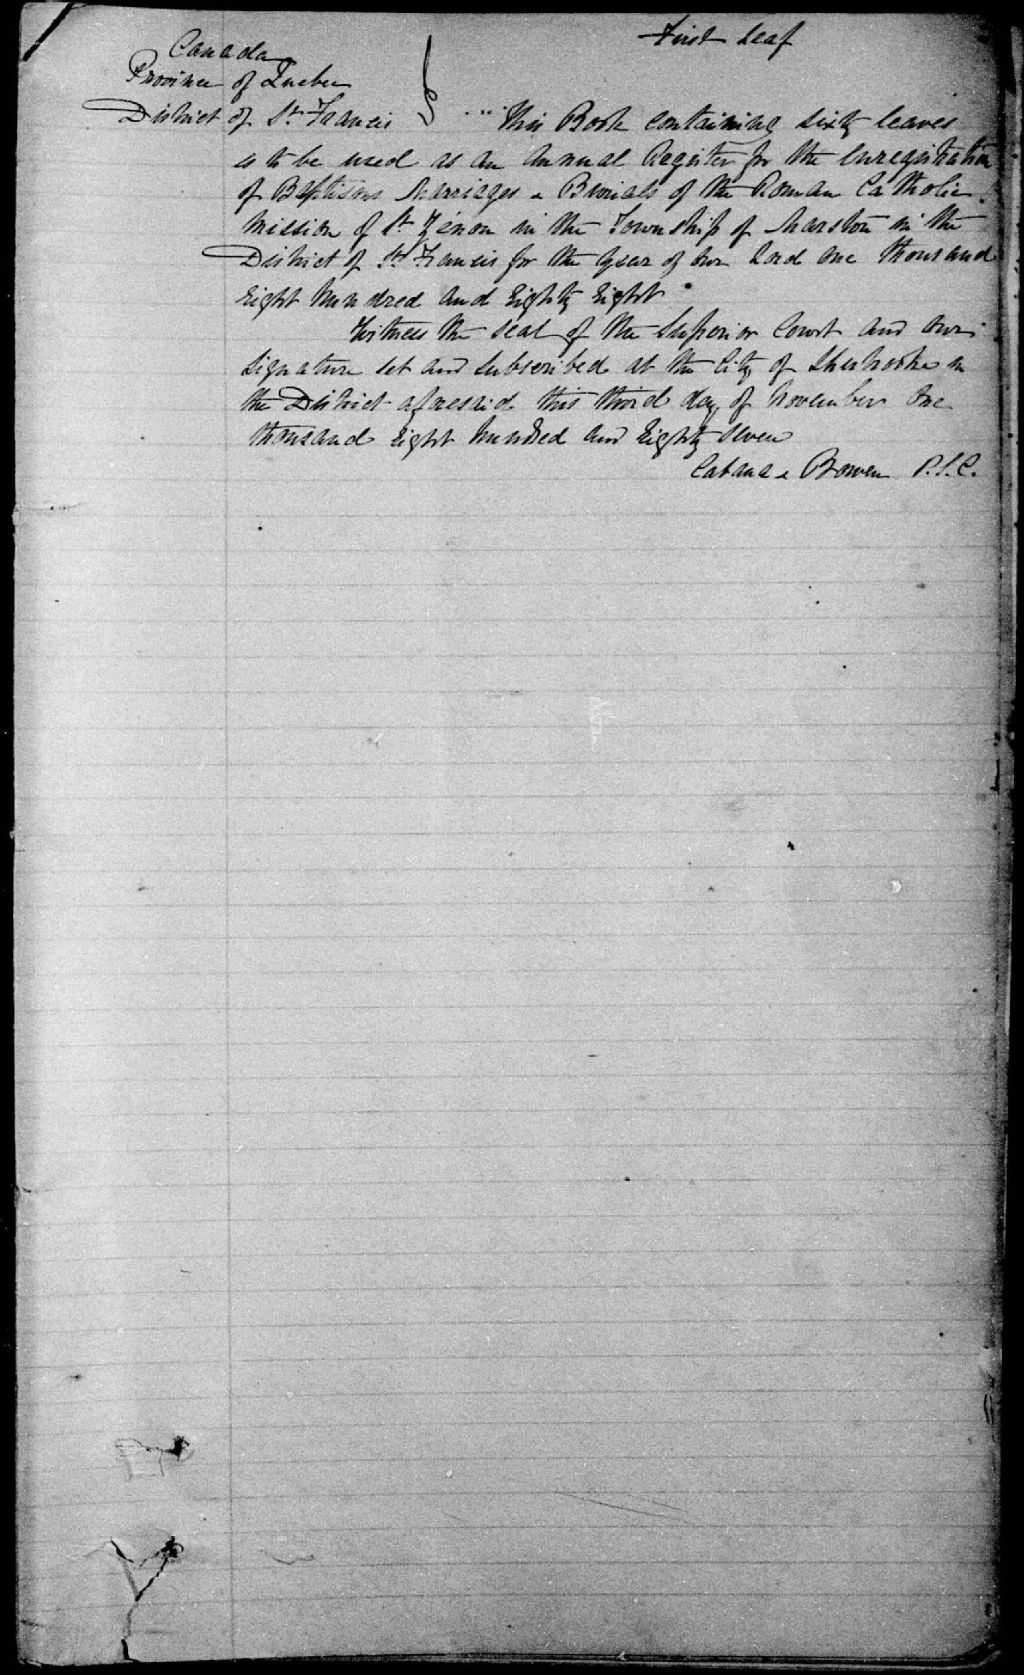 First Leaf
Canada
Province of Quebec
District of St Francis
This Book containing sixty leaves
is to be used as an Annual Register for the Enregistration
of Baptisms Marriages & Burials of the Roman Catholic
Mission of St Zénon in the Township of Marston in the
District of St Francis for the Year of Our Lord One thousand
Eight Hundred and Eighty Eight
Witness the Seal of the Superior Court and Our
Signature set and subscribed at the City of Sherbrooke in
the District aforesaid this third day of November One
thousand Eight Hundred and Eighty Seven
Cabana & Bowen P.S.C.